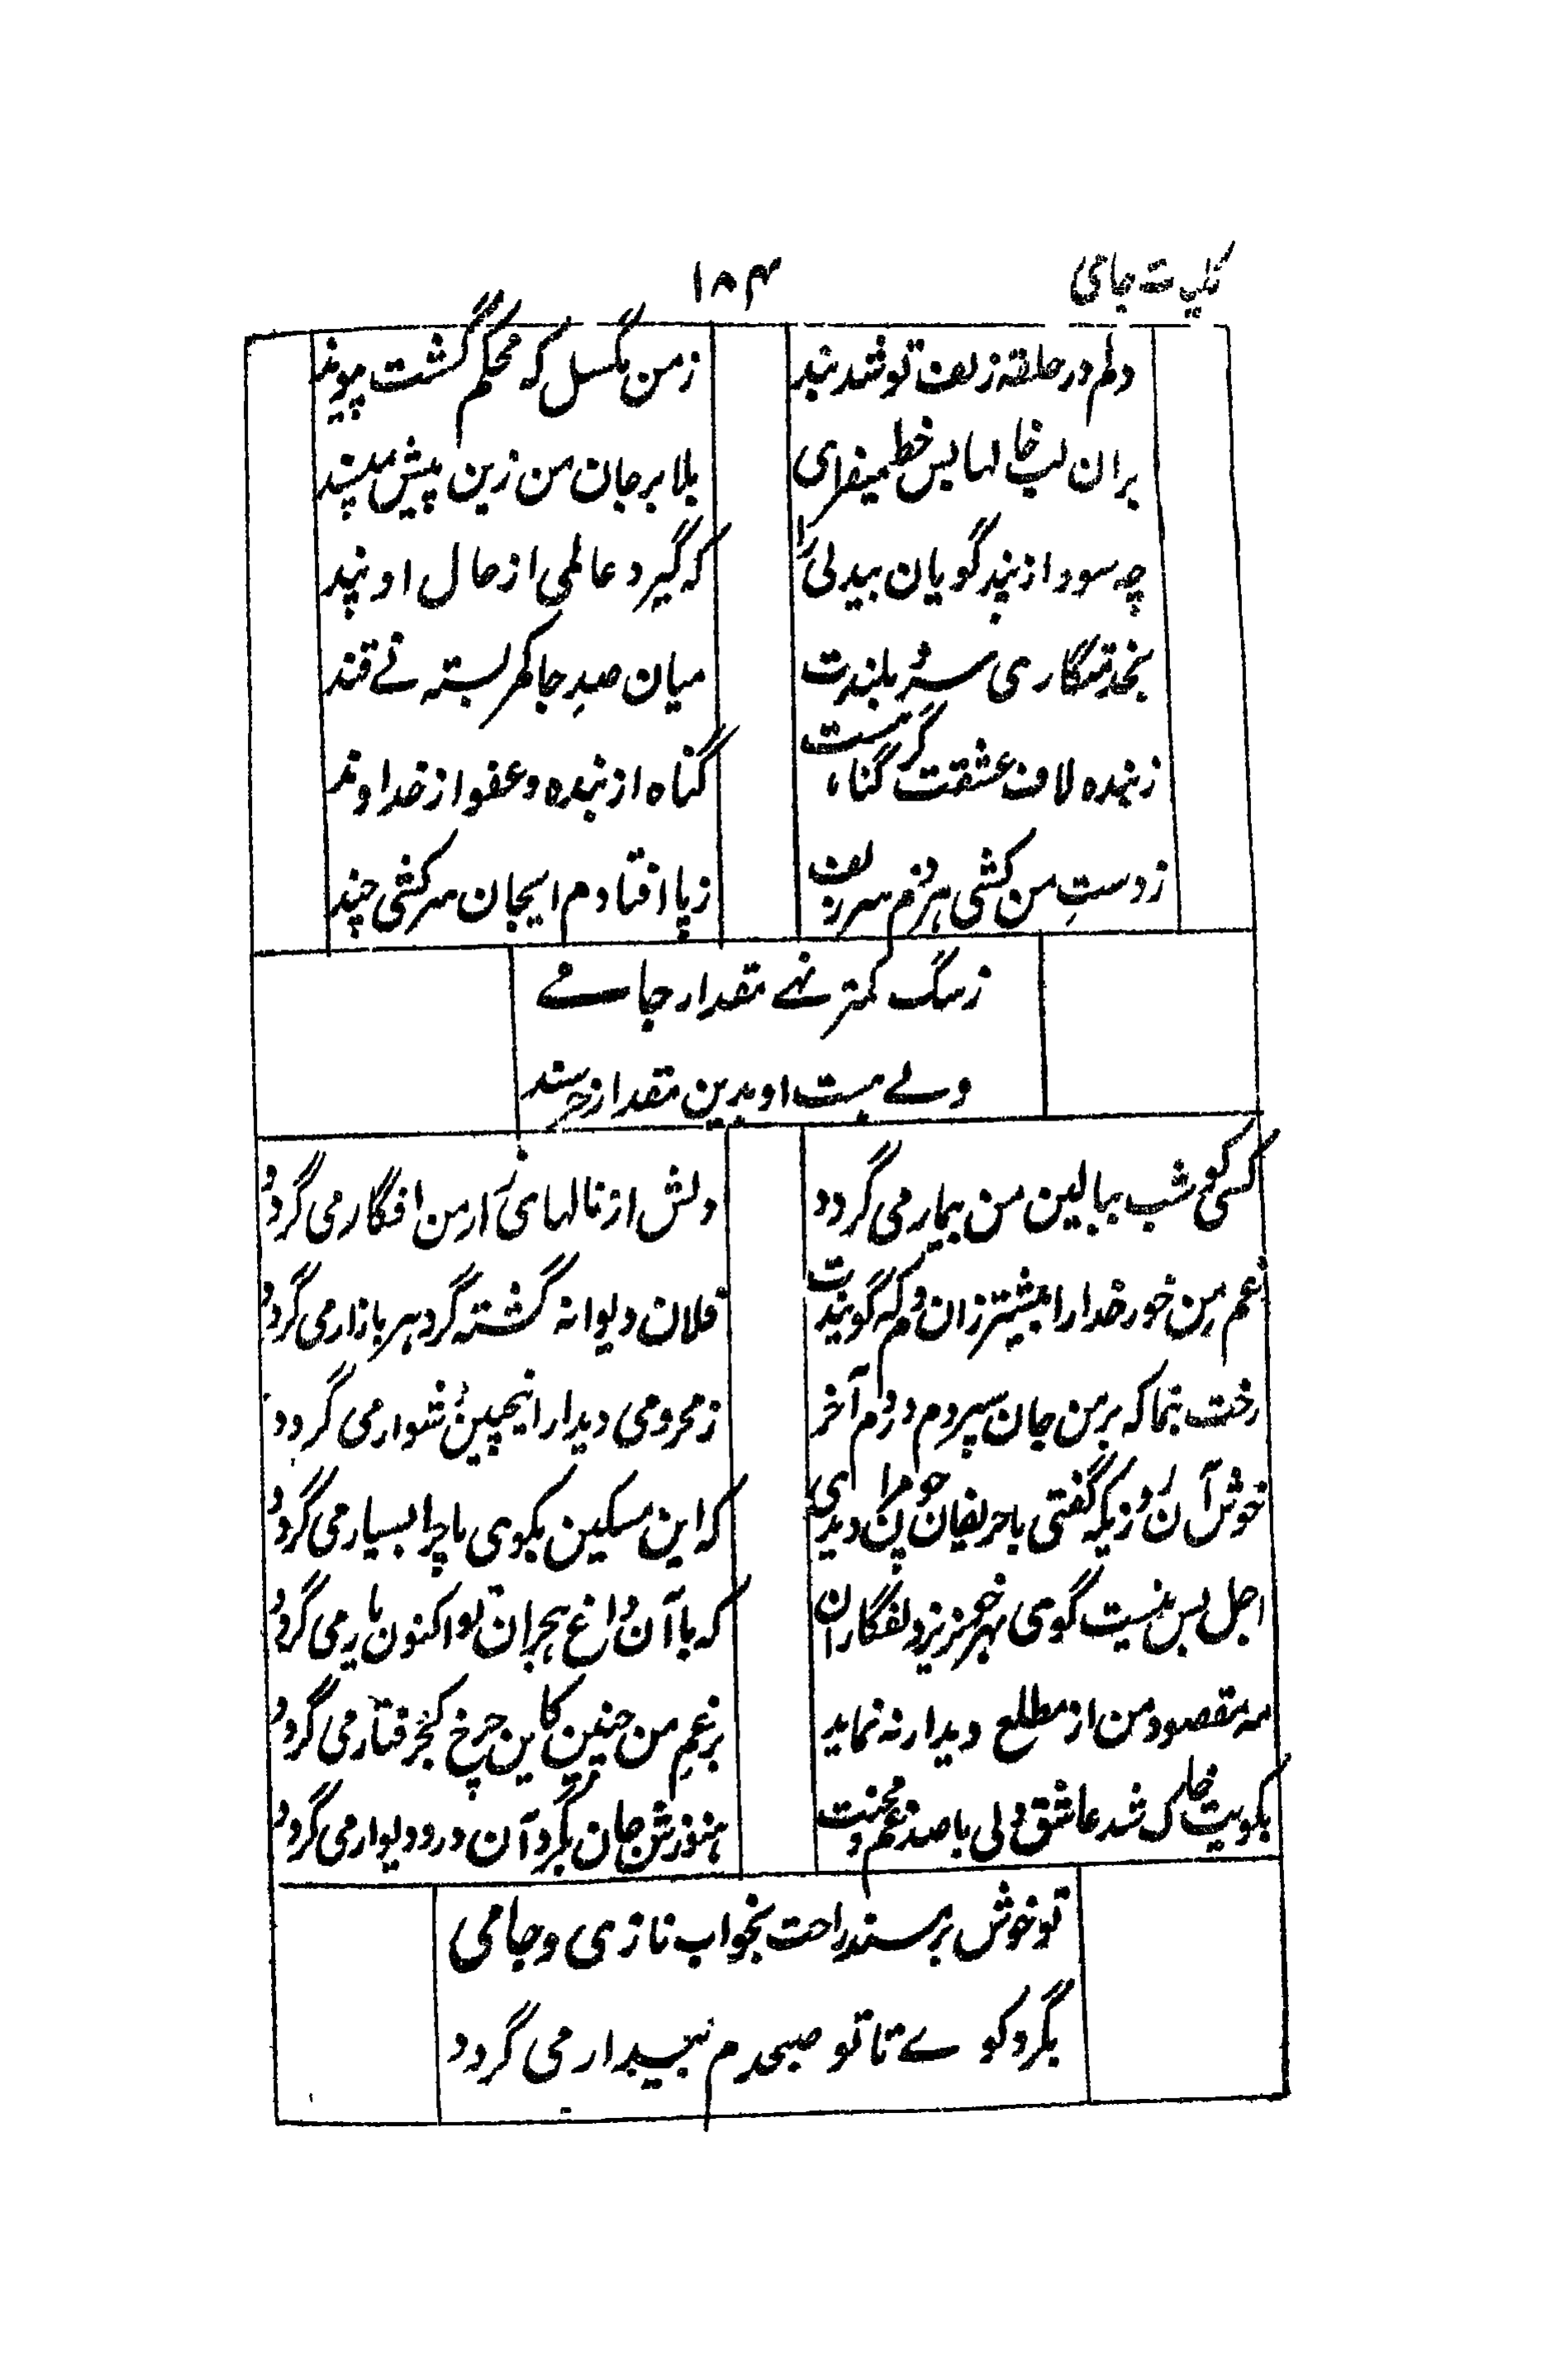 کلیات جامی
۱۸۴
دلم در حلقه زلف تو شد بند
ز من مگسل که محکم گشت پیوند
بران لب خالها بس خط میفزای
بلا بر جان من زین پیش مپسند
چه سود از پند گویان بیدلی را
که گیرد عالمی از حال او پند
بخدمتگاری سرو بلندت
میان صد جا کمر بسته نے قند
ز بنده لاف عشقت گر گناهست
گناه از بنده و عفو از خداوند
ز دستِ من کشی هر دم سر زلف
ز پا افتادم ایجان سرکشی چند
ز سگ کمتر نهے مقدار جامے
ولے هست او بدین مقدار خرسند
کسی کو شب ببالین من بیمار می گردد
دلش از نالهای زار من افگار می گردد
غم من خور خدا را پیشتر زان دم که گویندت
فلان دیوانه گشته گرد هر بازار می گردد
رخت بنما که بر من جان سپردم در دم آخر
ز محرومی دیدار اینچنین دشوار می گردد
خوش آن روزیکه گفتی با حریفان چون مرا دیدی
که این مسکین بکوی ما چرا بسیار می گردد
اجل بس نیست گوی بهر خونریز دلفگاران
که با آن داغ هجران تو اکنون یار می گردد
مه مقصود من از مطلع دیدار نه نماید
برغمِ من چنین کاین چرخ کجرفتار می گردد
بکویت خاک شد عاشق ولی با صد غم و محنت
هنوزش جان بگرد آن در و دیوار می گردد
تو خوش بر مسند راحت بخواب نازی و جامی
بگرد کوے تا تو صبحدم بیدار می گردد